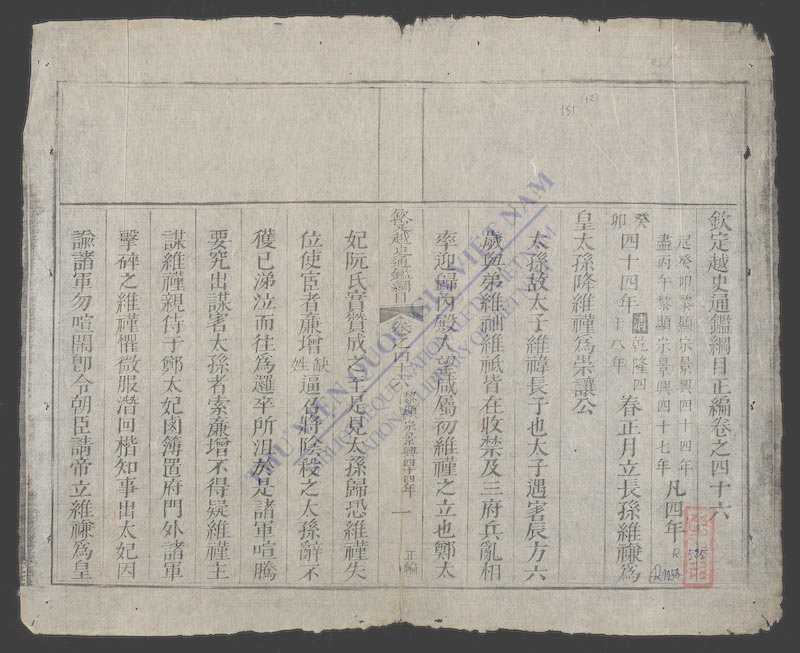 欽定越史通鑑綱目正編卷之四十六
起癸卯黎顯宗景興四十四年
盡丙午黎顯宗景興四十七年
凡四年
癸卯
四十四年
清乾隆四十八年
春正月立長孫維𥛭為
皇太孫降維禋為崇讓公
太孫故太子維禕長子也太子遇害辰方六
歲與弟維䄂維祗皆在收禁及三府兵亂相
率迎歸內殿人望咸屬初維禋之立也鄭太
欽定越史通鑑綱目
卷之四十六
黎顯宗景興四十四年
一
正編
妃阮氏實贊成之至是見太孫歸恐維禋失
位使宦者廉增
缺姓
逼召將陰殺之太孫辭不
獲已涕泣而往為邏卒所沮於是諸軍喧騰
要究出謀害太孫者索廉增不得疑維禋主
謀維禋親侍于鄭太妃鹵簿置府門外諸軍
擊碎之維禋懼微服潛回楷知事出太妃因
諭諸軍勿喧鬧卽令朝臣請帝立維𥛭為皇
THƯ VIỆN QUỐC GIA VIỆT NAM
BIBLIOTHEQUE NATIONALE DU VIETNAM
NATIONAL LIBRARY OF VIETNAM
(12)
(5)
R.
525